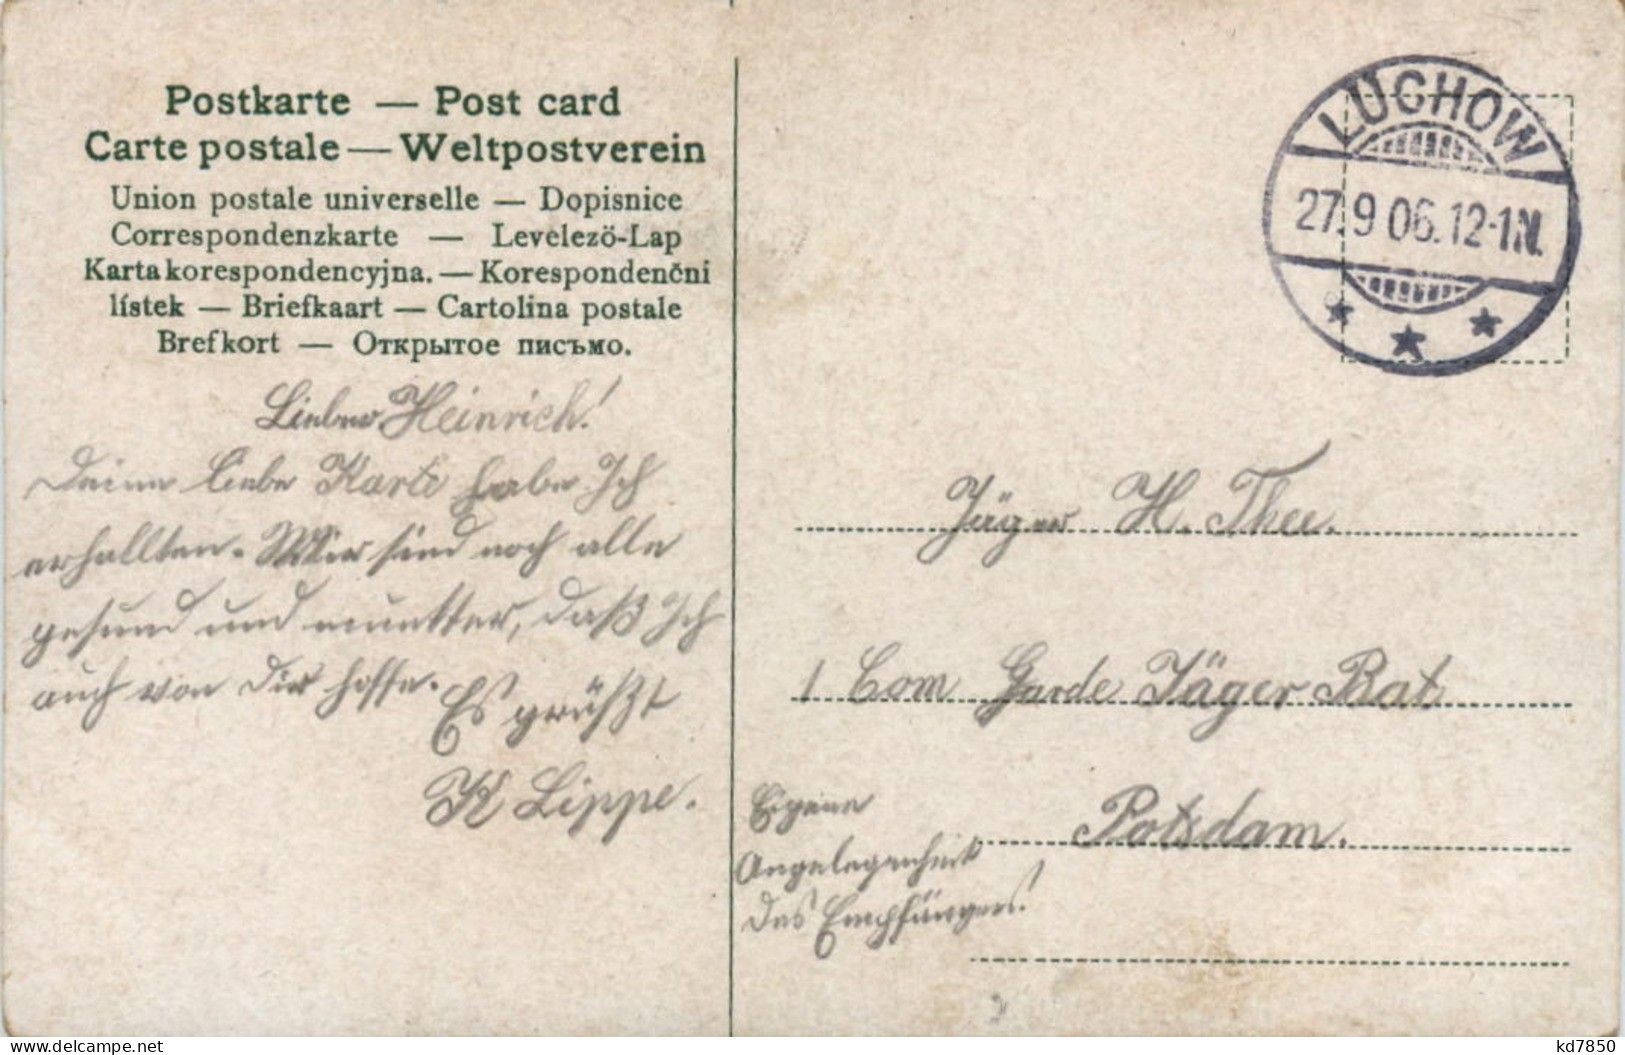 Postkarte — Post card
Carte postale — Weltpostverein
Union postale universelle — Dopisnice
Correspondenzkarte — Levelezö-Lap
Karta korespondencyjna. — Korespondenčni
lístek — Briefkaart — Cartolina postale
Brefkort — Открытое письмо.
Lieber Heinrich!
Deine liebe Karte habe Ich
erhallten. Wir sind noch alle
gesund und muntter, daß Ich
auch von Dir hoffe.
Es grüßt
K Lippe.
LÜCHOW
27.9 06. 12-1N.
Jäger H. Thee.
1 Com Garde Jäger Bat
Potsdam.
Eigene
Angelegenheit
des Empfängers!
delcampe.net
kd7850